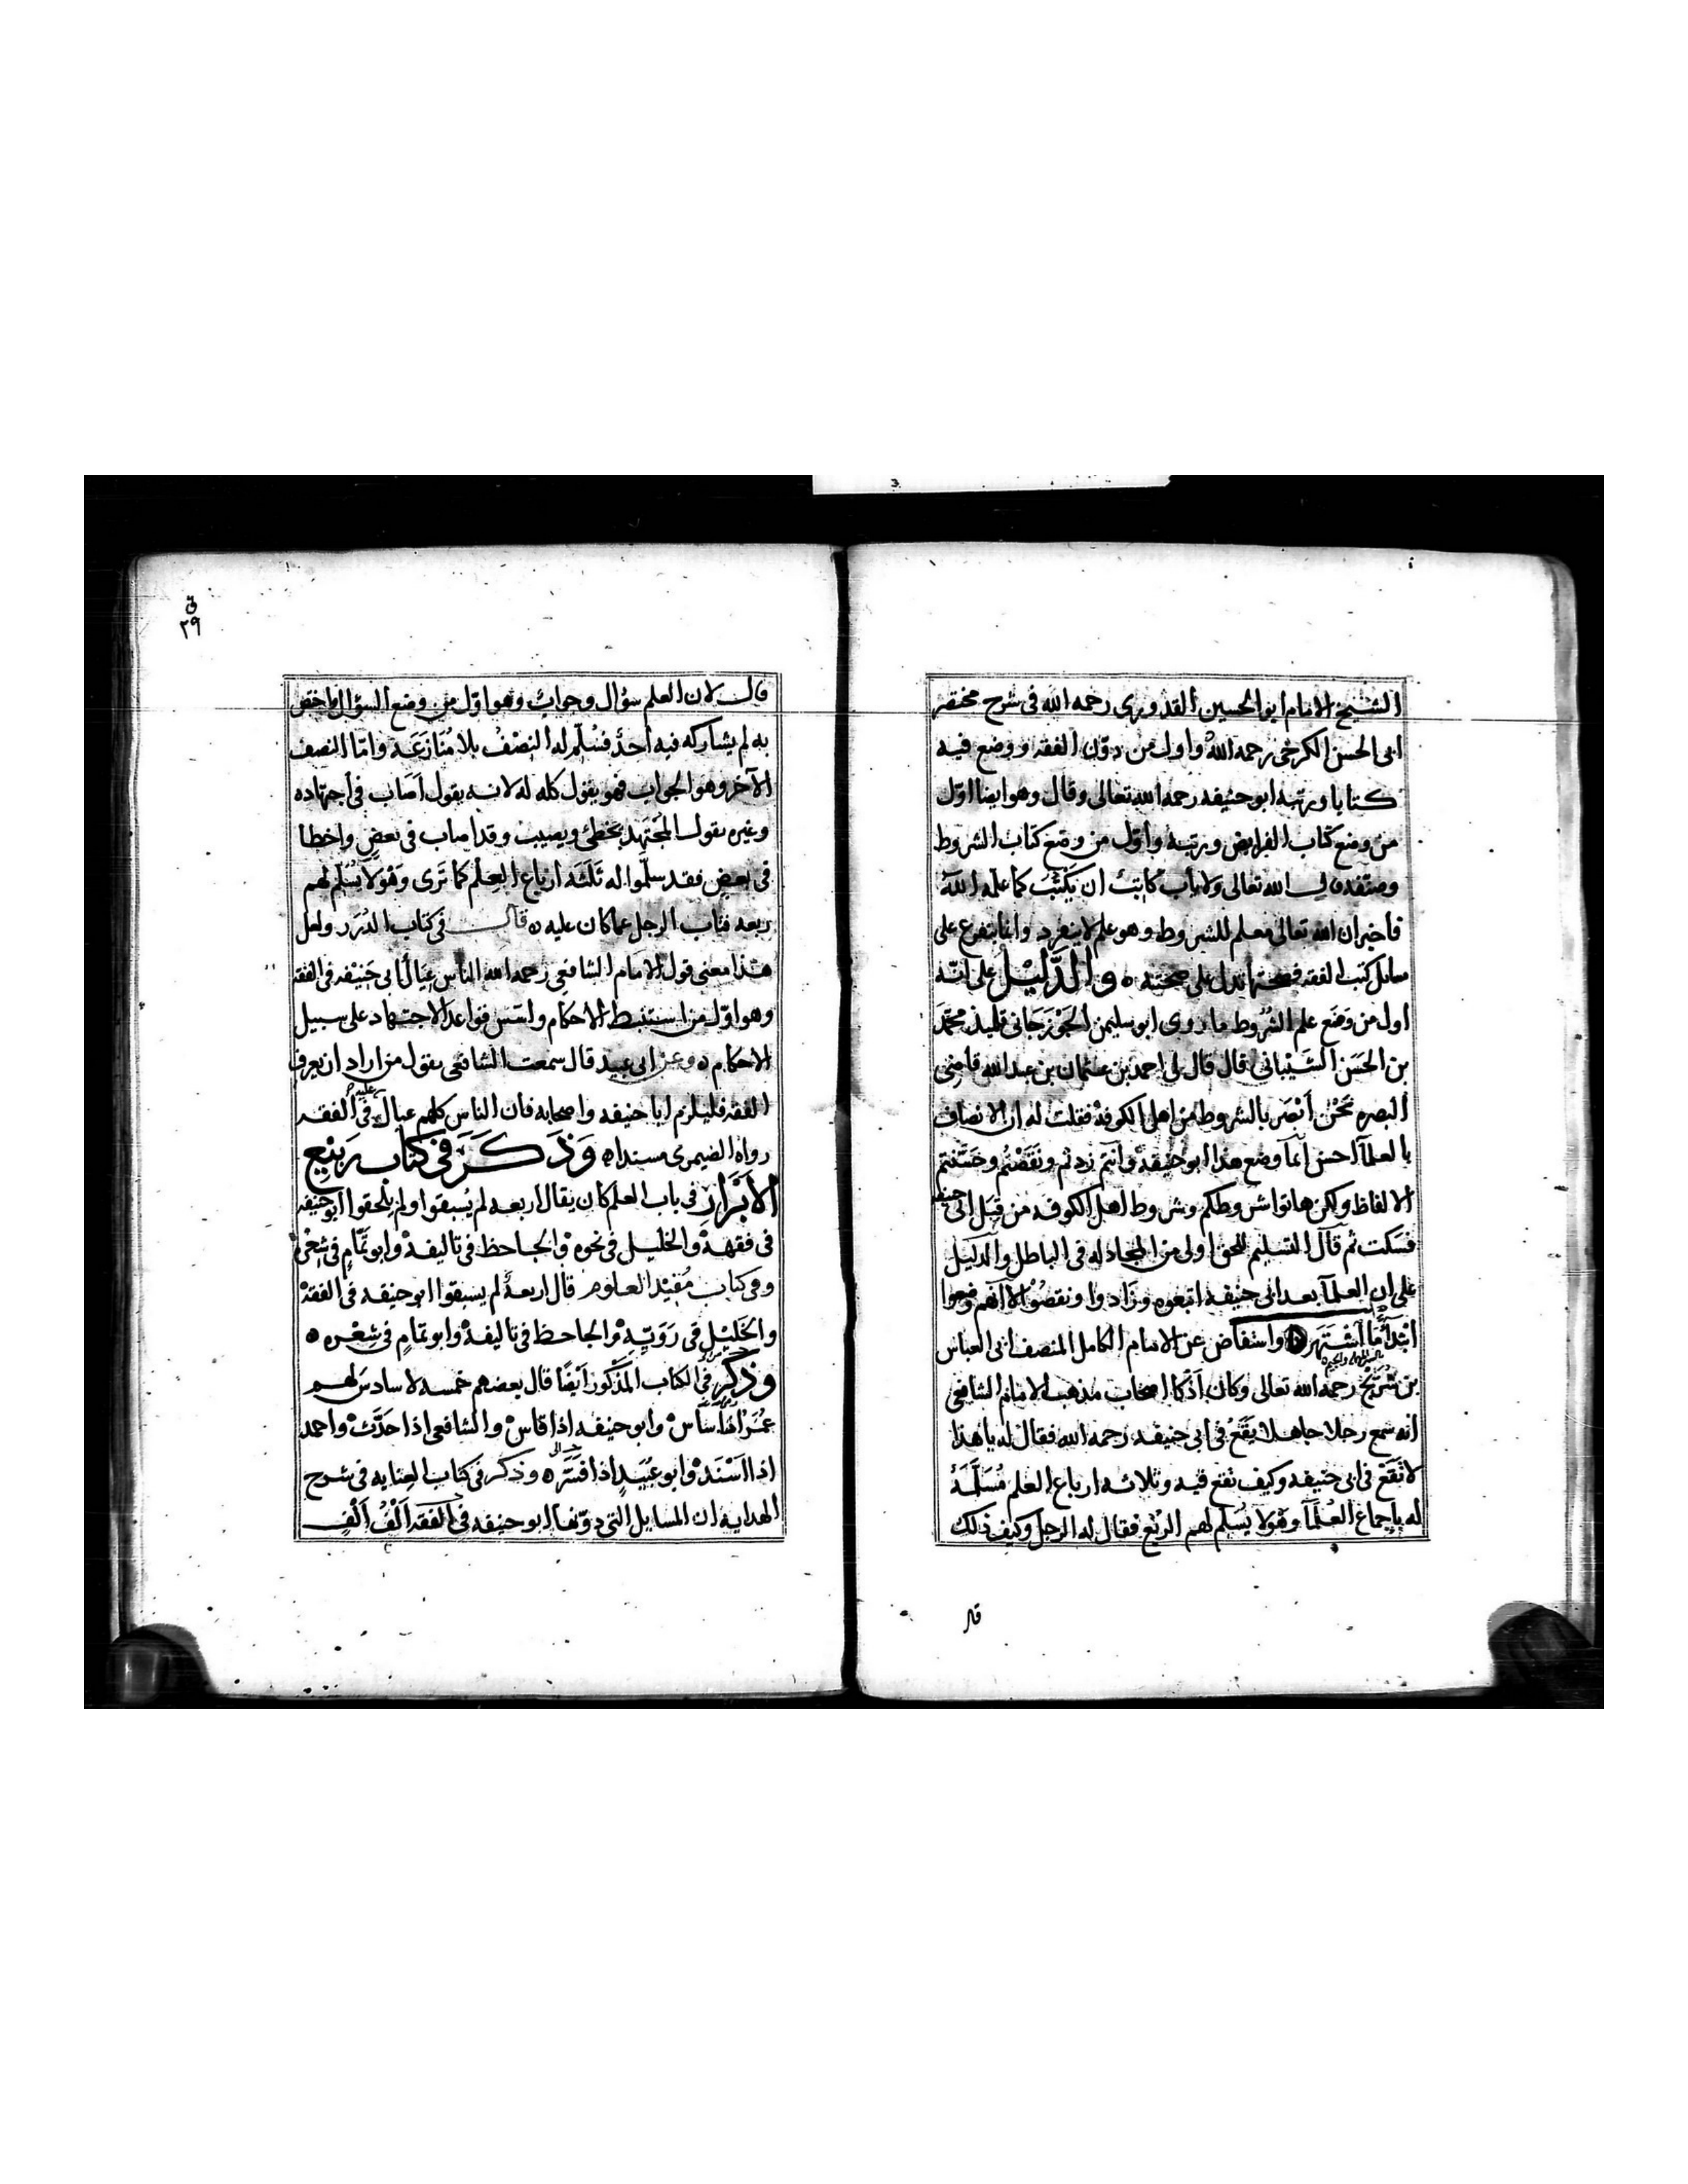 الشيخ الامام ابو الحسين القدوري رحمه الله في شرح مختصر
ابى الحسن الكرخى رحمه الله واول من دوّن الفقه ووضع فيه
كتابا ورتبه ابو حنيفه رحمه الله تعالى وقال وهو ايضا اوّل
من وضع كتاب الفرايض ورتبه واوّل من وضع كتاب الشروط
وصنّفه قال الله تعالى ولا ياب كاتبٌ ان يكتُبَ كما علمه اللهُ
فاخبر ان الله تعالى معلم للشروط وهو علم لا ينفرد وانما يتفرع على
مسائل كتب الفقه فصحتها تدل على صحته ه والدَّليْل على انّه
اول من وَضَع علم الشُروط ما روى ابو سليمن الجَوْزَجانى تلميذ محمّد
بن الحَسَن الشَيْبانى قال قال لى احمد بن عثمان بن عبد الله قاضى
البصره نَحْن اَبْصَر بالشروط من اهل الكوفهْ فقلت له ان الانصاف
بالعلمآ احسن انما وضع هذا ابو حنيفهْ وانتم زدتم ونَقَصْتُم وحَسَّنتم
الالفاظ ولكن هاتوا شروطكم وشروط اهل الكوفه من قَبل ابى حنيفه
فسكت ثم قال التسليم للحق اولى من المجادله فى الباطل والدليل
على ان العلمآ بعد ابى حنيفه اتبعوه وزادوا ونقصُوا لا انهم وضعوا
ابتدآءً ما اشْتَهَر ه واستفاض عن الامام الكامل المنصف ابى العباس
بالسين المهمله والجيم
بن سُرَيْج رحمه الله تعالى وكان اذكا اصحاب مذهب الامام الشافعى
انه سمع رجلا جاهلا يَقَعُ فى ابى حنيفه رحمه الله فقال له يا هذا
لا تقَعْ فى ابى حنيفه وكيف تقع فيه وثلاثه ارباع العلم مُسَلَّمَةٌ
له باِجماع العُلمآ وهَولا يُسَلم لهم الرُبْع فقال له الرجل وكيف ذلك
قال
ق
٣٩
قال لان العلم سؤال وجوابٌ وهو اوّل من وضع السؤال فاختص
به لم يشاركه فيه احدٌ فسُلّم له النصْفُ بلا مُنازَعَة وامّا النصف
الآخر وهو الجواب فهو يقول كله له لانه يقول اصاب فى اجتهاده
وغيره يقول المجتهد يخطئ ويصيب وقد اصاب فى بعضٍ واخطا
فى بعضٍ فقد سلّموا له ثَلثَه ارباع العِلم كما تَرى وهَوْلا يُسَلم لهم
ربعه فتاب الرجل عما كان عليه ه قال فى كتاب الدُرَر ولعل
هذا معنى قول الامام الشافعى رحمه الله الناس عِيَال ابى حَنيْفه فى الفقه
وهو اوّل من استنبط الاحكام واسّس قواعد الاجتهاد على سبيل
الاحكام ه وعن ابى عبيد قال سمعت الشافعى يقول من اراد ان يعرف
الفقه فليلزم ابا حنيفه واصحابه فان الناس كلهم عيال عليه فى الفقه
رواه الصيمرى مسندا ه وَذَكَرَ فى كتاب رَبيْع
الاَبْرَار فى باب العلم كان يقال اربعه لم يُسبقوا ولم يُلحقوا ابو حنيفه
فى فقههْ والخليل فى نحوه والجاحظ فى تاليفهْ وابو تمّام فى شِعْره
وفى كتاب مُفيْد العلوم قال اربعةٌ لم يسبقوا ابو حنيفه فى الفقهْ
والخَليْل فى رَوَيّهْ والجاحظ فى تاليفهْ وابو تمّامٍ فى شِعْره ه
وذكَر فى الكتاب المَذْكور اَيْضًا قال بعضهم خمسه لا سادسَ لهم
عُمَر اذا سَاسْ وابو حنيفه اذا قاسْ والشافعى اذا حَدَّثْ واحمد
اذا اَسْنَدْ وابو عُبَيدٍ اذا فسَّرَ ه وذكر فى كتاب العِنايه فى شرح
الهدايه ان المسايل التى دوّنها ابو حنيفه فى الفقه اَلْفُ اَلْفٍ